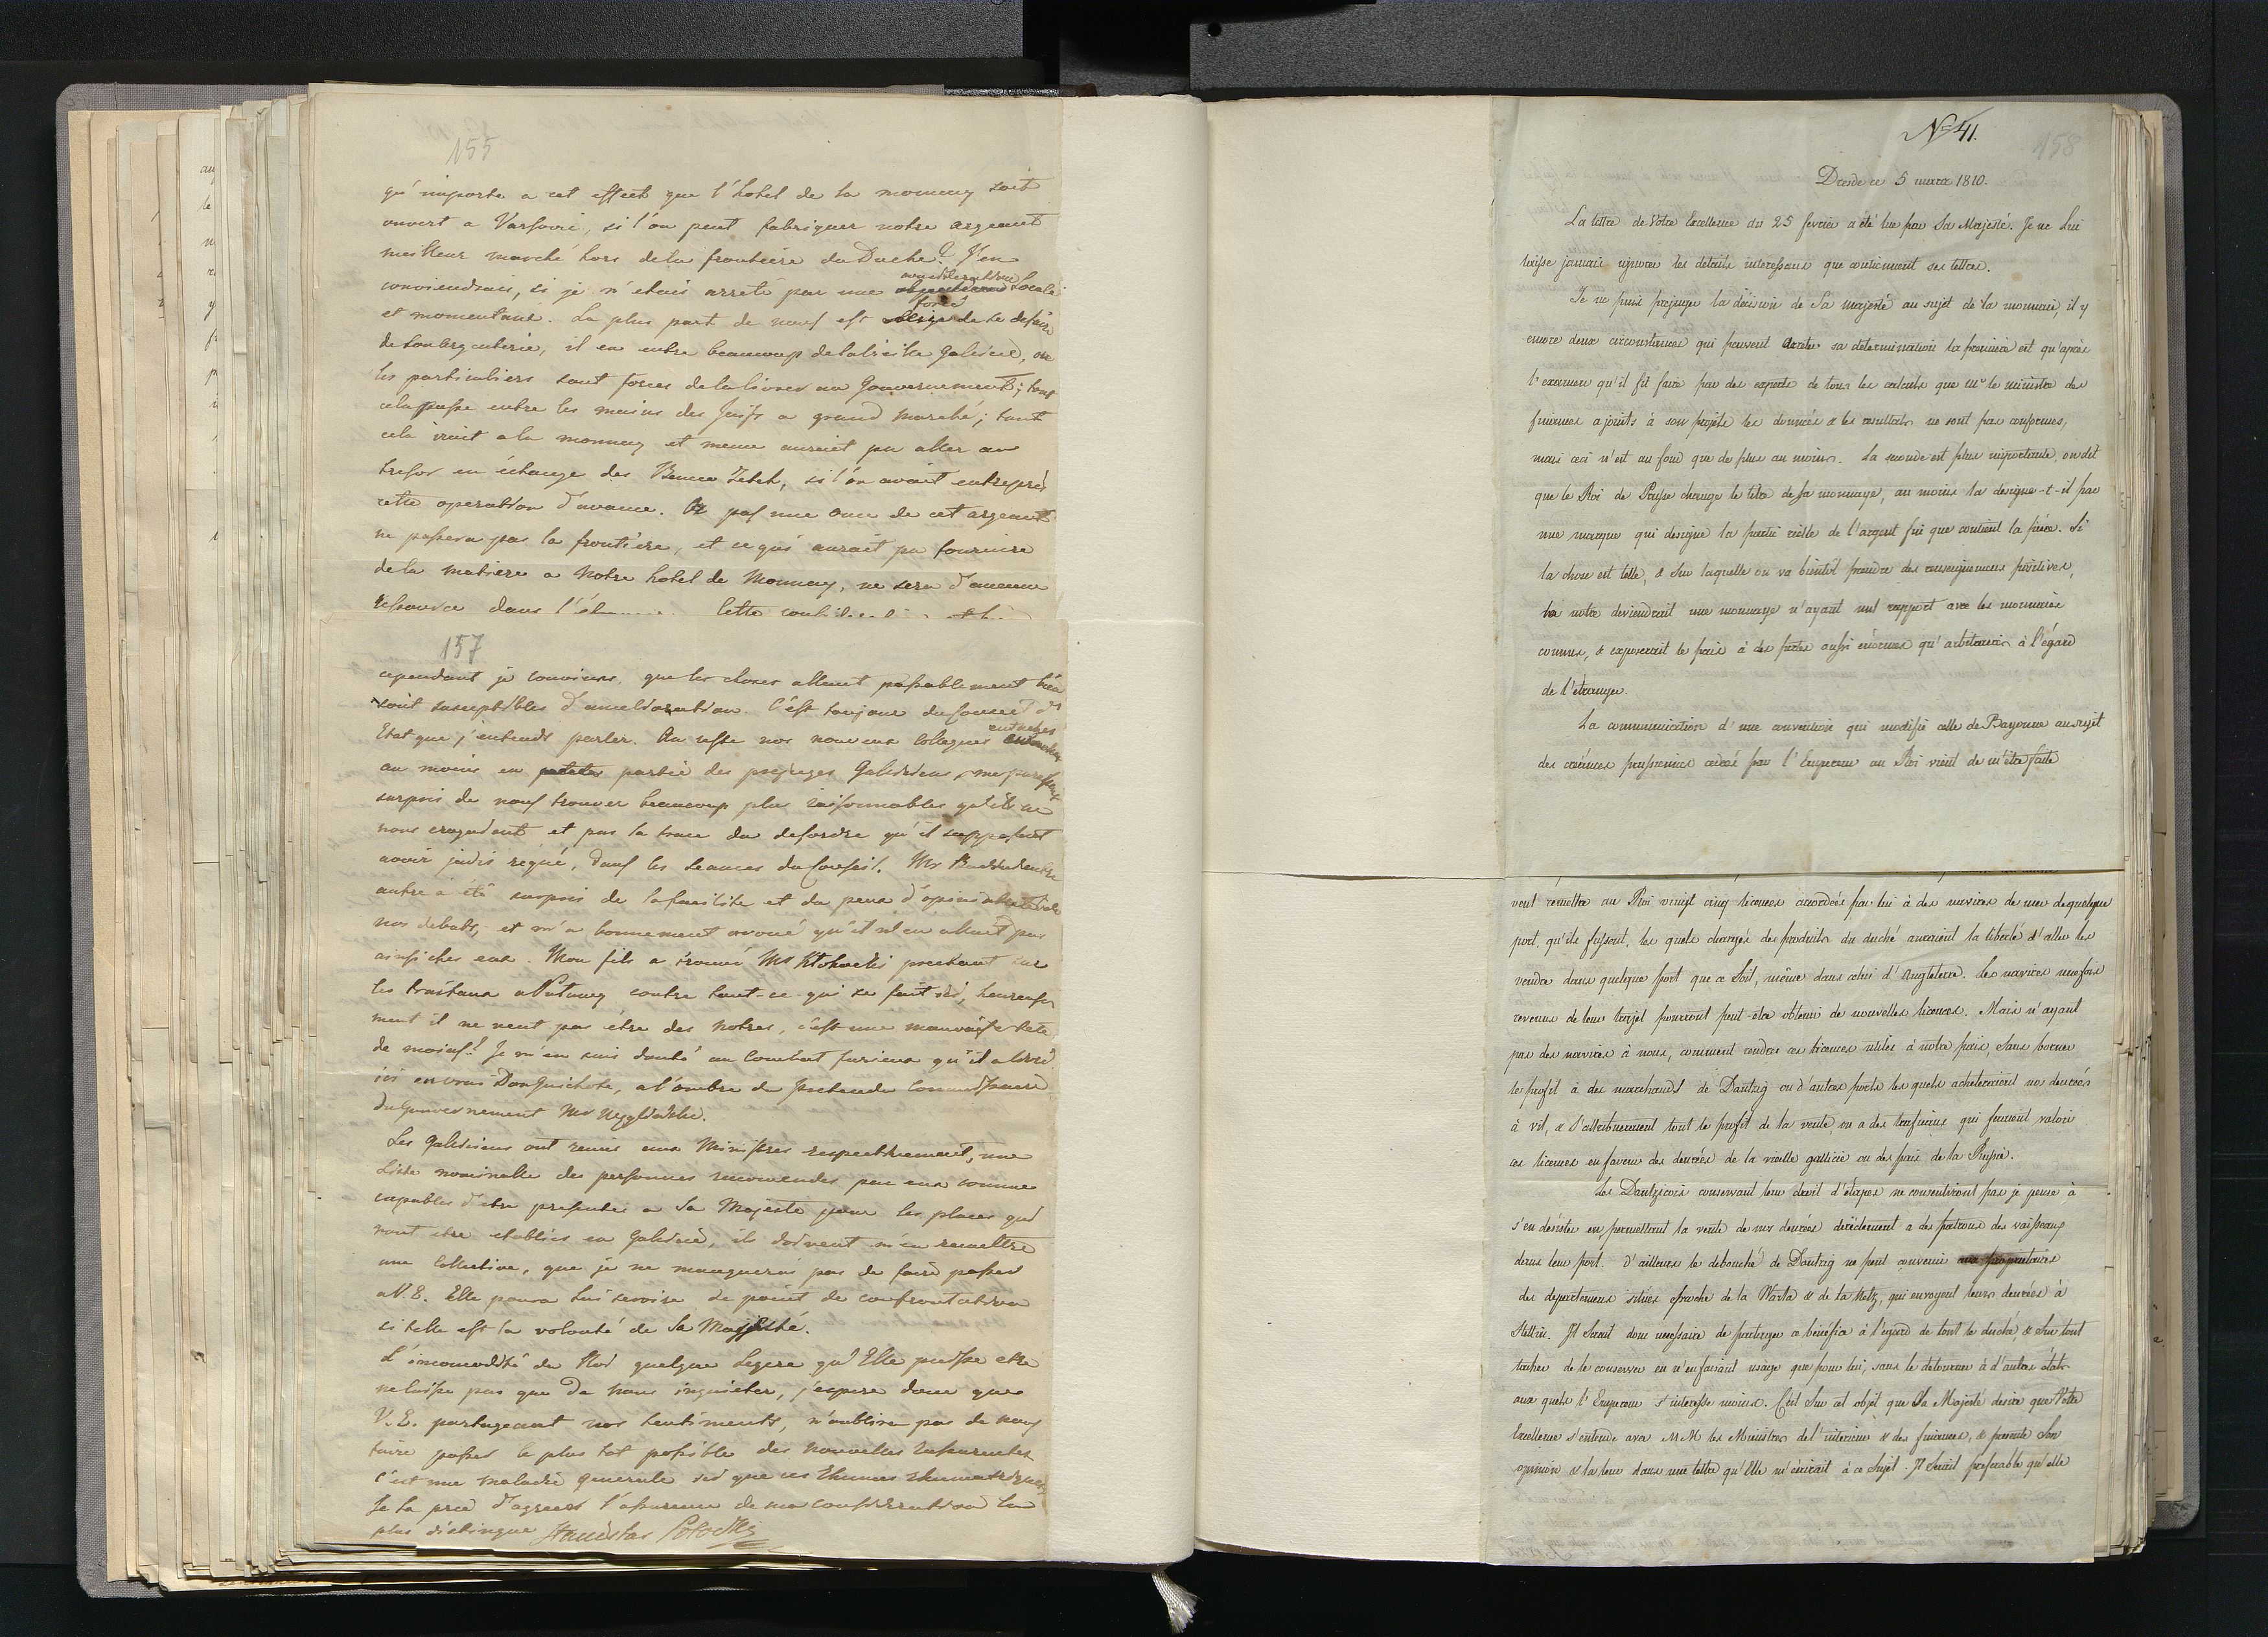 155
qu'importe a cet effect que l'hotel de la monnay soit
ouvert a Varsovie, si l'on peut fabriquer notre argeant
meilleur marché hors de la frontière du Duché? J'en
conviendrais, si je n'etais arreté par une consideration locale
et momentané. La plus part de nous est forcé de se defaire
de son argenterie, il en entre beaucoup de la vieille Galicie, ou
les particuliers sont forces de la livrer au Gouvernement; tout
cela passe entre les mains des Juifs a grand marché; tout
cela irait a la monnay et meme aurait pu aller au
tresor en échange des Zetel, si l'on avait entrepris
cette operation d'avance. Or pas une once de cet argeant
ne passera pas la frontière, et ce qui aurait pu fournire
de la matiere a Notre hotel de Monnay, ne sera d'aucune
ressource dans Cette
157
cependant je conviens, que les choses allant passablement bien
sont susceptibles d'amelioration. C'est toujour du Conseil d'
Etat que j'entends parler. Au reste nos nouveaux Collegues entachés
au moins en partie des prejuges Galiciens, me paraissent
surpris de nous trouver beaucoup plus raisonnables qu'ils ne
nous croyaient et pas la trace du desordre qu'il supposaient
avoir jadis regné, dans les seances du Conseil. Mr entre
autre a été surpris de la facilité et du peux d'opiniatreté de
nos debats, et m'a bonnement avoué qu'il n'en allait pas
ainsi chez eux. Mon fils a trouvé Mr prechant sur
les a Pulawy contre tout-ce-qui se fait ici, heureuse
ment il ne veut pas être des notres, c'est une mauvaise tete
de moins! Je m'en suis douté au Combat furieux qu'il a livré
ici en vrai Don Quichote, a l'ombre du pretendu Commissaire
du Gouvernement Mr
Les Galiciens ont remis aux Ministres respectivement, une
Liste nominale des personnes recomendés par eux comme
capables d'etre presentés a Sa Majesté pour les places qui
vont etre etablies en Galicie, ils doivent m'en remettre
une Collective, que je ne manquerai pas de faire passer
a V. E. Elle poura lui servire de point de confrontation
si telle est la volonté de Sa Majesté.
L'incomodité du Roi quelque legere qu'Elle puisse etre
ne laisse pas que de nous inquieter, j'espere donc que
V. E. partageant nos sentiments, n'oubliera pas de nous
faire passer le plus tot possible des nouvelles rassurantes
c'est une maladie generale ici que ces Rhumes rhumatiques
Je la prie d'agréer l'assurance de ma consideration la
plus distingué Stanislas Potocki
N° 41.
158
Dresde ce 5 mars 1810.
La lettre de Votre Excellence du 25 fevrier a été lue par Sa Majesté. Je ne lui
laisse jamais ignorer les details interessans que contiennent ses lettres.
Je ne puis prejuger la décision de Sa Majesté au sujet de la monnaie, il y
encore deux circonstances qui peuvent arreter sa determination la premiere est qu'après
l'examen qu'il fit faire par des experts de tous les calculs que Mr le ministre des
finances a joints à son projet les données & les resultats ne sont pas conformes,
mais ceci n'est au fond que de plus au moins. La seconde est plus importante, on dit
que le Roi de Prusse change le titre de sa monnaye, au moins la designe-t-il par
une marque qui designe la partie réelle de l'argent fin que contient la pièce. Si
la chose est telle, & sur laquelle on va bientot prendre des renseignemens positives,
la notre deviendrait une monnaye n'ayant nul rapport avec les monnaies
connus, & exposerait le païs à des pertes aussi enormes qu'arbitraires à l'égard
de l'etranger.
La communication d'une convention qui modifie celle de Bayonne au sujet
des créances prussiennes cédées par l'Empereur au Roi vient de m'être faite
veut remettre au Roi vingt cinq licences accordées par lui à des navires de mer de quelque
port, qu'ils fussent, les quels chargés de produits du duché auraient la liberté d'aller les
vendre dans quelque port que ce soit, même dans celui d'Angleterre. Les navires une fois
revenus de leur trajet pourront peut être obtenir de nouvelles licences. Mais n'ayant
pas des navires à nous, comment rendre ces licences utiles à notre païs, sans borner
le profit à des marchands de Dantzig ou d'autres ports les quels acheteraient nos denrées
à vil, & s'attribueraient tout le profit de la vente, ou a des trafiquans qui feraient valoir
ces licences en faveur des denrées de la vieille gallicie ou des païs de la Russie.
Les Dantzicois conservant leur droit d'étapes ne consentiront pas je pense à
s'en désister en permettant la vente de nos denrées directement a des patrons des vaisseaux
dans leur port. D'ailleurs le debouché de Dantzig ne peut convenir aux proprietaires
des departemens situés proche de la Warta & de la Netz, qui envoyent leurs denrées à
Stettin. Il serait donc necessaire de partager ce bénéfice à l'égard de tout le duché, & sur tout
tacher de le conserver en n'en faisant usage que pour lui, sans le detourner à d'autres états
aux quels l'Empereur s'interesse moins. C'est sur cet objet que Sa Majesté desire que Votre
Excellence s'entende avec MM les Ministres de l'interieur & des finances, & presente son
opinion & la leur dans une lettre qu'Elle m'écrirait à ce sujet. Il serait preferable qu'elle